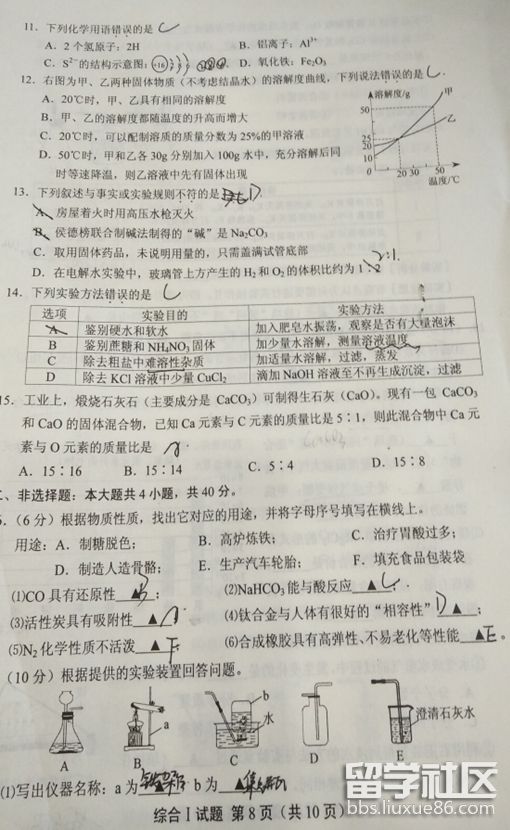 11. 下列化学用语错误的是
A. 2个氢原子：2H B. 铝离子：Al³⁺
C. S²⁻的结构示意图： D. 氧化铁：Fe₂O₃
12. 右图为甲、乙两种固体物质（不考虑结晶水）的溶解度曲线，下列说法错误的是
A. 20℃时，甲、乙具有相同的溶解度
B. 甲、乙的溶解度都随温度的升高而增大
C. 20℃时，可以配制溶质的质量分数为25%的甲溶液
D. 50℃时，甲和乙各30g分别加入100g水中，充分溶解后同
时等速降温，则乙溶液中先有固体出现
溶解度/g
甲
乙
50
25
20
10
0 20 30 50
温度/℃
13. 下列叙述与事实或实验规则不符的是 D
A. 房屋着火时用高压水枪灭火
B. 侯德榜联合制碱法制得的“碱”是Na₂CO₃
C. 取用固体药品，未说明用量的，只需盖满试管底部
D. 在电解水实验中，玻璃管上方产生的H₂和O₂的体积比约为1：2 2:1.
14. 下列实验方法错误的是 C
选项 实验目的 实验方法
A 鉴别硬水和软水 加入肥皂水振荡，观察是否有大量泡沫
B 鉴别蔗糖和NH₄NO₃固体 加少量水溶解，测量溶液温度
C 除去粗盐中难溶性杂质 加适量水溶解，过滤，蒸发
D 除去KCl溶液中少量CuCl₂ 滴加NaOH溶液至不再生成沉淀，过滤
15. 工业上，煅烧石灰石（主要成分是CaCO₃）可制得生石灰（CaO）。现有一包 CaCO₃
和CaO的固体混合物，已知Ca元素与C元素的质量比是5：1，则此混合物中Ca元
素与O元素的质量比是
A. 15：16 B. 15：14 C. 5：4 D. 15：8
二、非选择题：本大题共4小题，共40分。
6.（6分）根据物质性质，找出它对应的用途，并将字母序号填写在横线上。
用途：A. 制糖脱色； B. 高炉炼铁； C. 治疗胃酸过多；
D. 制造人造骨骼； E. 生产汽车轮胎； F. 填充食品包装袋
(1)CO具有还原性▲B； (2)NaHCO₃能与酸反应▲C；
(3)活性炭具有吸附性▲A； (4)钛合金与人体有很好的“相容性”D▲；
(5)N₂化学性质不活泼▲F； (6)合成橡胶具有高弹性、不易老化等性能▲E。
（10分）根据提供的实验装置回答问题。
a
b
水
澄清石灰水
A B C D E
(1)写出仪器名称：a为▲ b为▲
综合Ⅰ试题 第8页（共10页）
留学社区
bbs.liuxue86.com